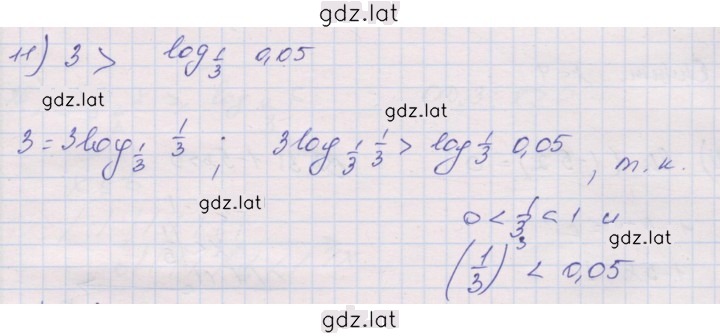 gdz.lat
11) 3 > log_{1/3} 0,05
gdz.lat gdz.lat
3 = 3log_{1/3} 1/3 ; 3log_{1/3} 1/3 > log_{1/3} 0,05 , т. к.
gdz.lat
0 < 1/3 < 1 и
gdz.lat
(1/3)^3 < 0,05
gdz.lat